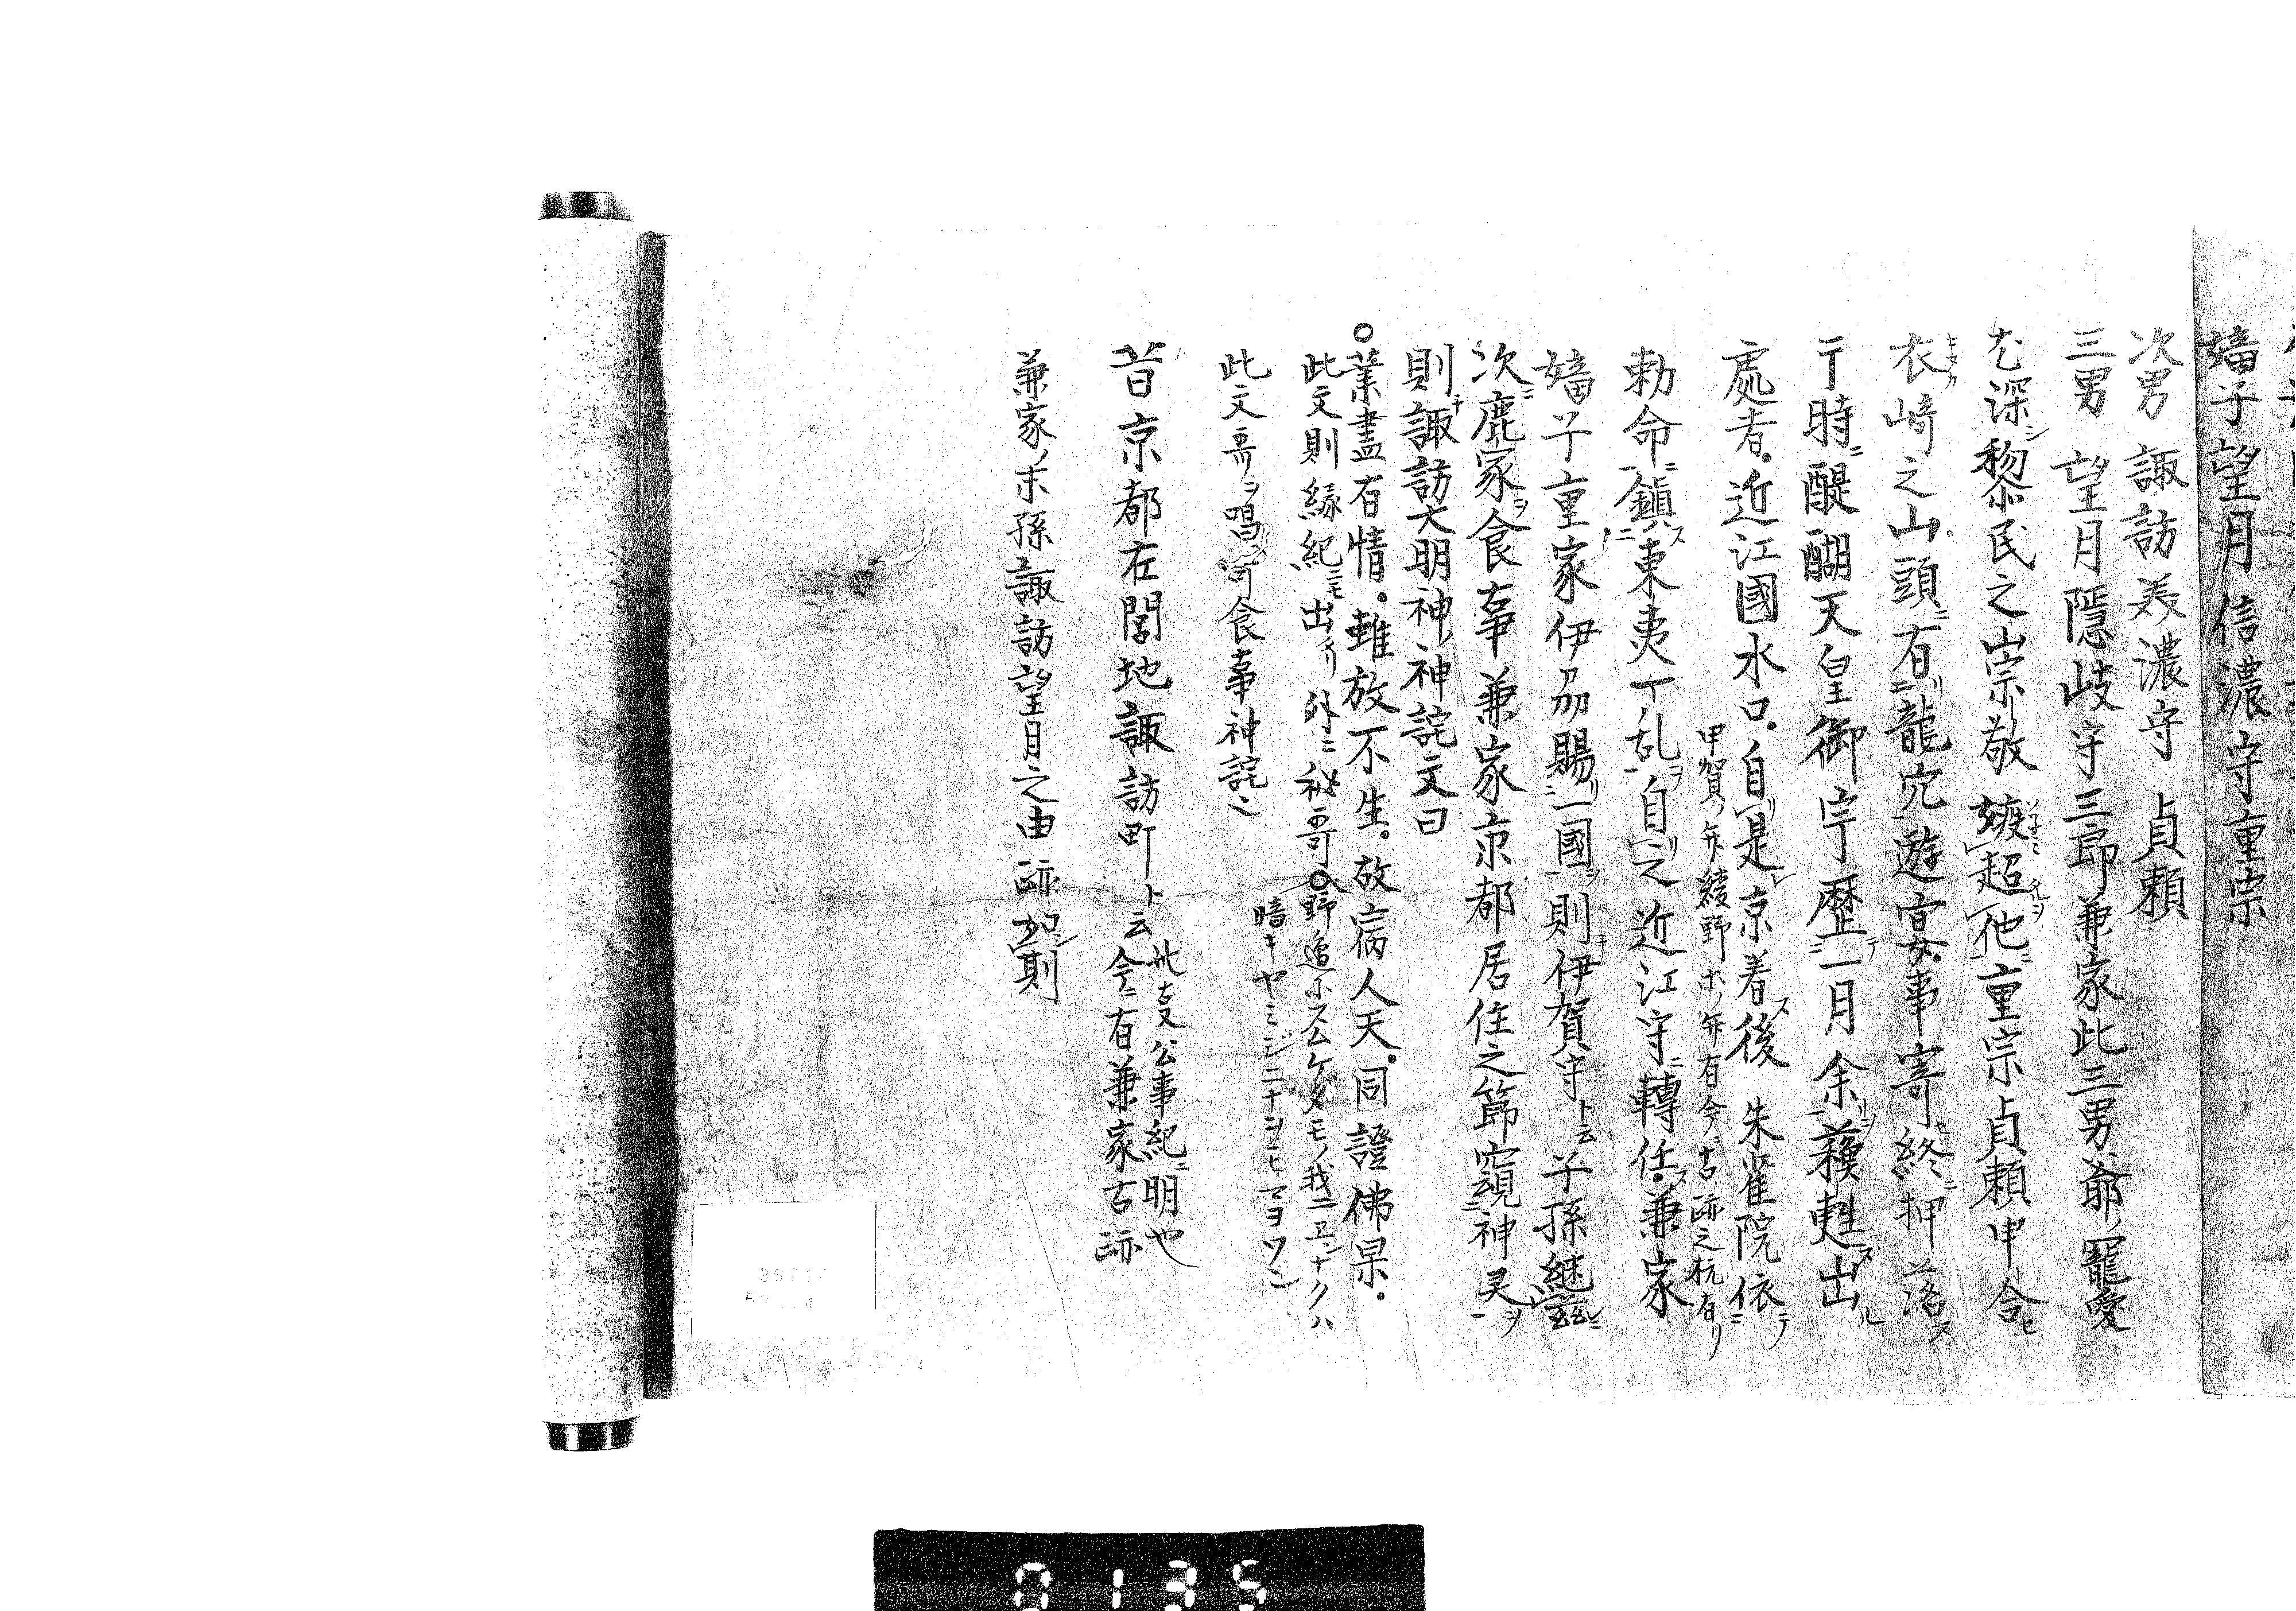 嫡子望月信濃守重宗
次男 諏訪美濃守 貞頼
三男 望月隠岐守三郎兼家此三男爺ノ寵愛
尤深シ黎民之崇敬嫉超他ニ重宗貞頼申合セ
衣崎之山頭ニ有リ龍穴遊宴事寄セ終ニ押落ス
于時ニ醍醐天皇御宇歴テ一月余蘓甦出ル
處者近江國水口自リ是京着ス後 朱雀院依テ
甲賀ノ郡有今ニ古跡之杭有リ
勅命ニ鎮ス東夷ノ乱ヲ自リ之近江守ニ轉任ス兼家
嫡子重家伊刕賜リ一國ヲ則チ伊賀守ト云子孫継
次ニ鹿家ヲ食事兼家京都居住之節窺神㚑ヲ
則チ諏訪大明神ノ神詫文曰
○業盡有情雖放不生故宿人天同證佛果
此文則縁紀ニモ出タリ外ニ秘哥○野邊ニスムケダモノ我ニヱンナクハ
暗キヤミジニナヲモマヨワン
此文哥ヲ唱可食事神詫之
昔京都在閭地諏訪町ト云
此支公事紀ニ明也
今ニ有兼家古跡
兼家ノ末孫諏訪望月之由跡如シ則
0135